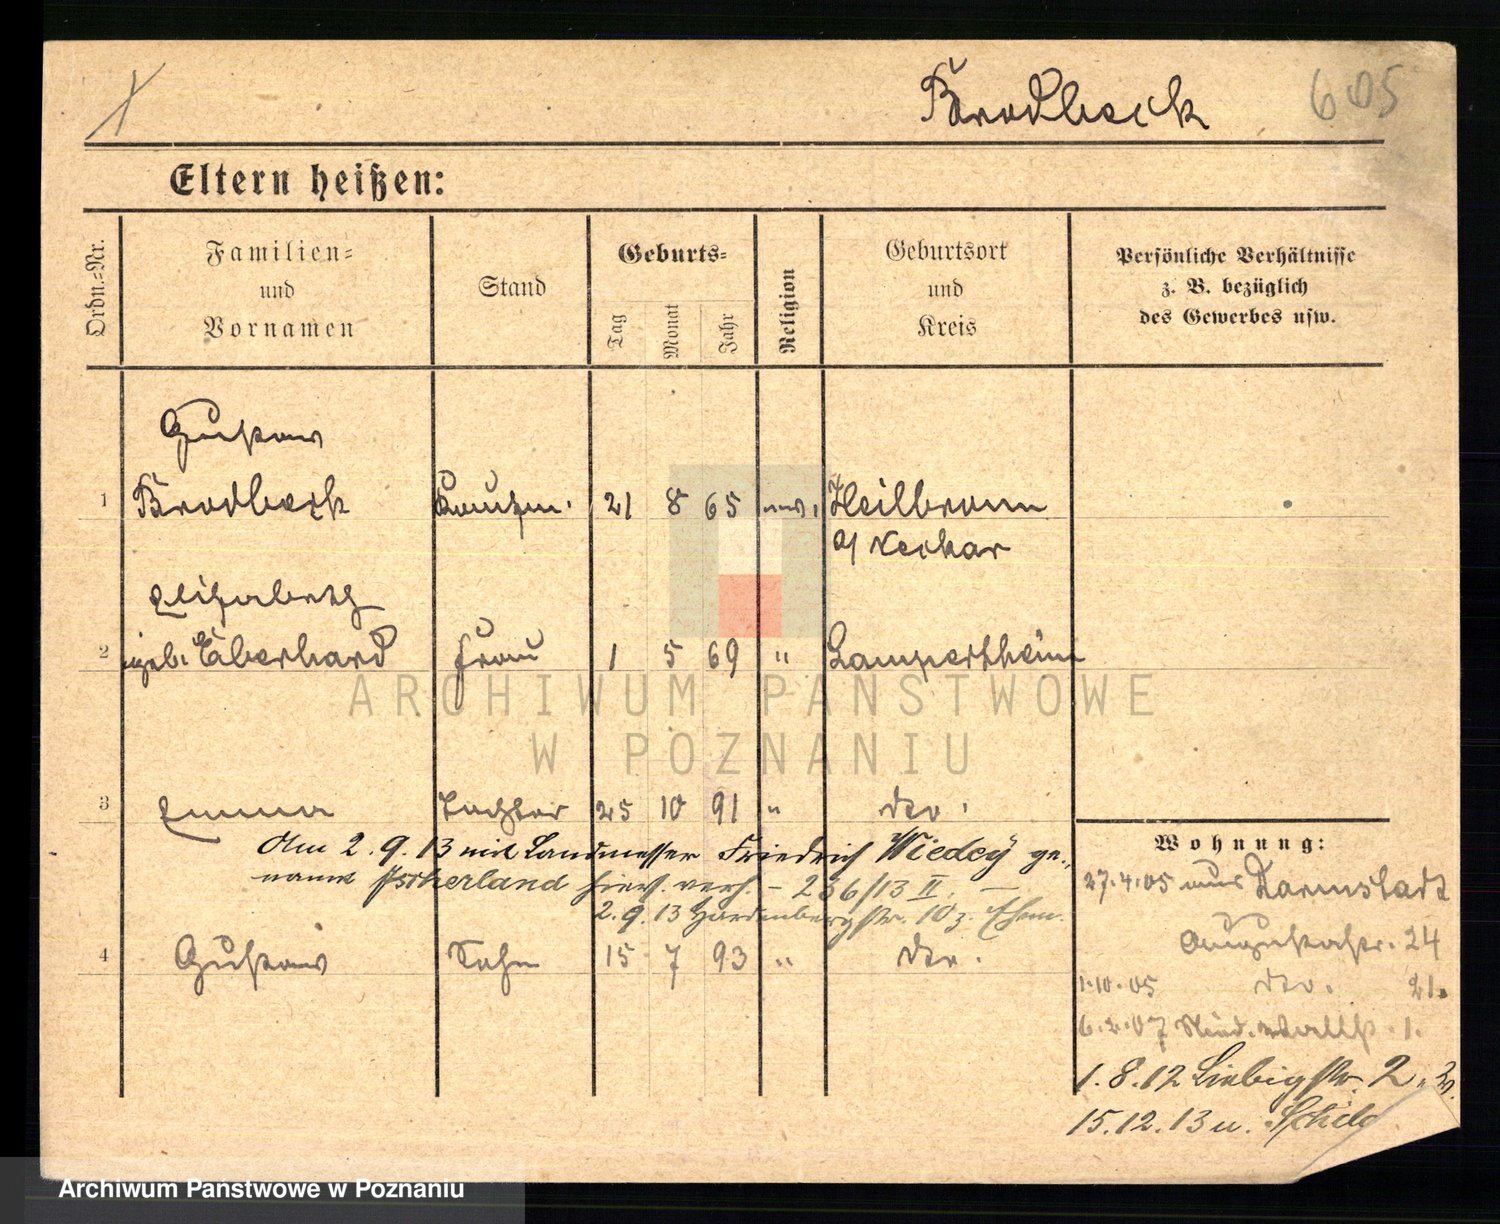 Brodbeck 605
Eltern heißen:
Ordn.-Nr.
Familien-
und
Vornamen
Stand
Geburts-
Tag
Monat
Jahr
Religion
Geburtsort
und
Kreis
Persönliche Verhältnisse
z. B. bezüglich
des Gewerbes usw.
Gustav
1 Brodbeck Kaufm. 21 8 65 Heilbronn
a/ Neckar
Elisabeth
2 geb. Eberhard Frau 1 5 69 " Lampertheim
3 Emma Tochter 25 10 91 " dto.
Am 2.9.13 mit Landmesser Friedrich Wiedey ge-
nannt hier verh. - 256/13 II. -
2.9.13 Hardenbergstr. 10 z. Ehem.
4 Gustav Sohn 15 7 93 " dto.
Wohnung:
27.4.05 aus Darmstadt
Augustastr. 24
1.10.05 dto. 21.
6.2.07 Wallstr. 1.
1.8.12 Liebigstr. 2
15.12.13 n.
ARCHIWUM PAŃSTWOWE
W POZNANIU
Archiwum Państwowe w Poznaniu